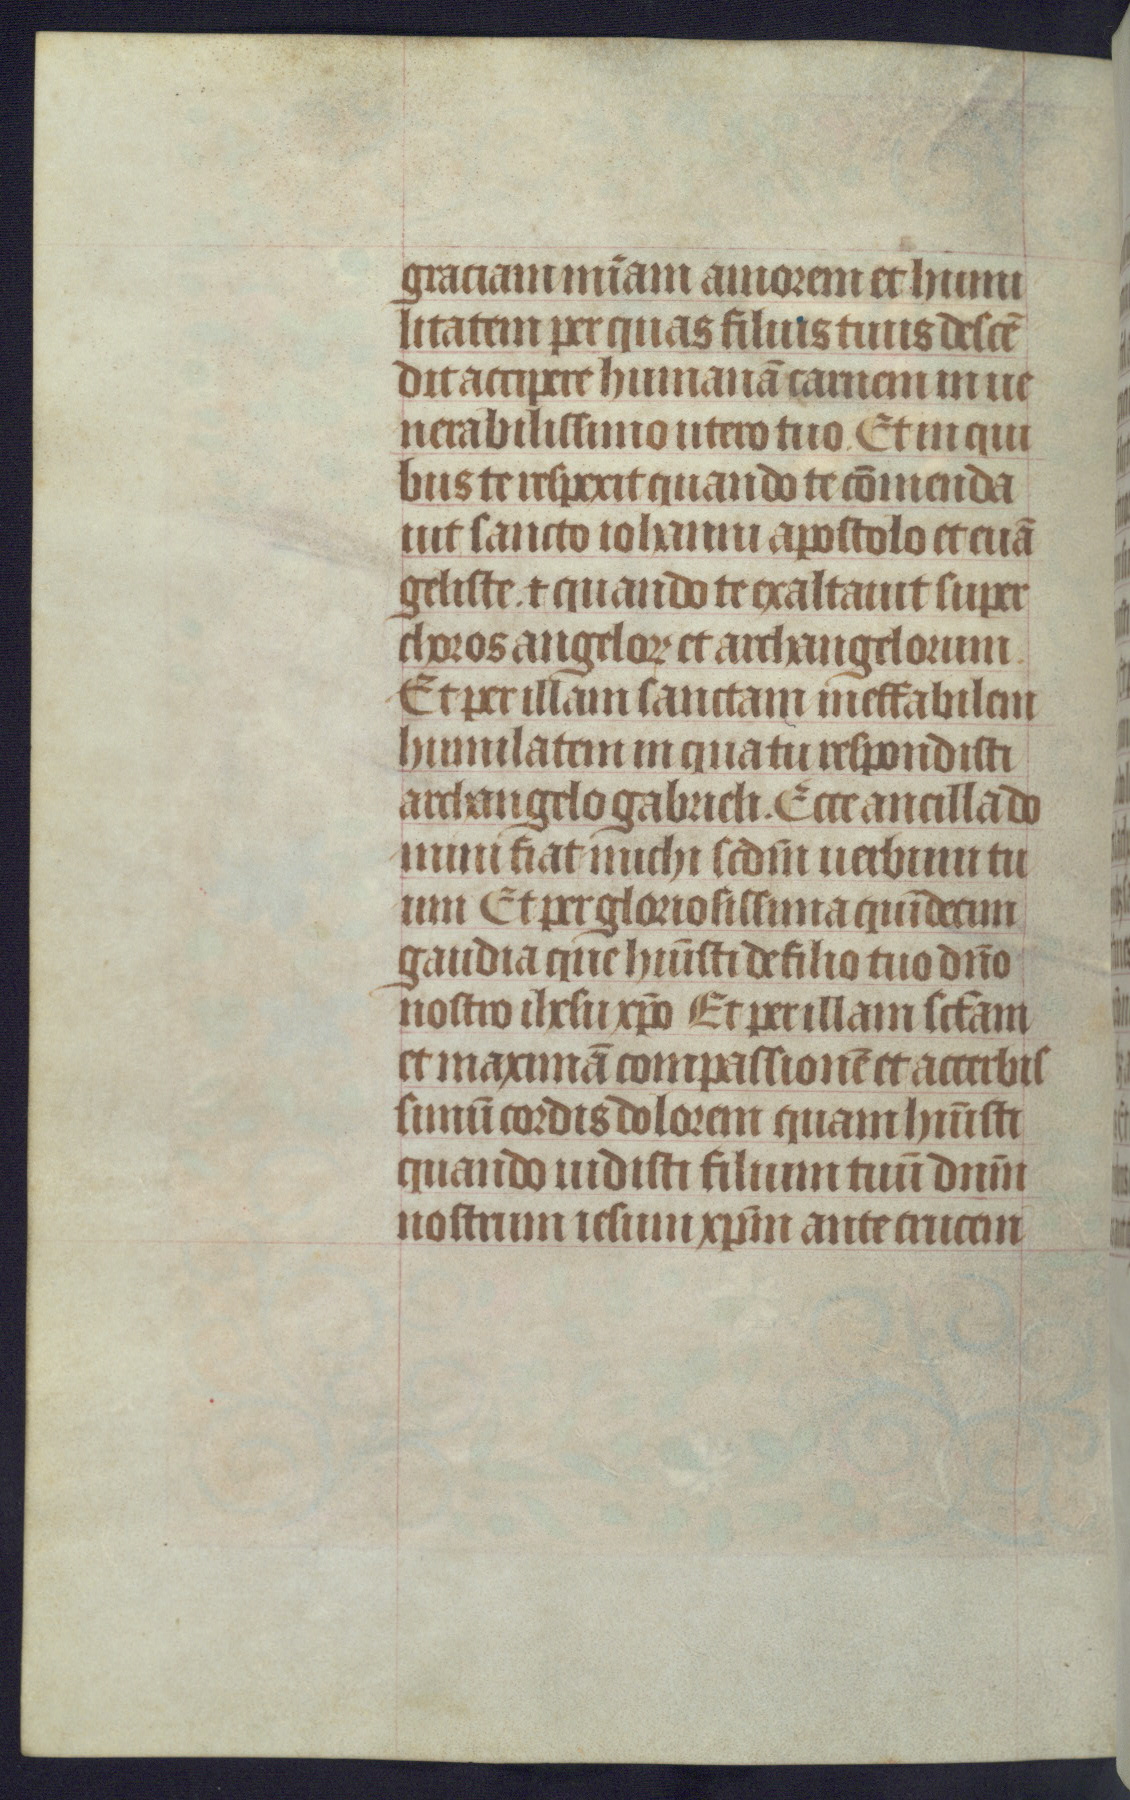 graciam mīam amorem et humi
litatem per quas filius tuus descē
dit accipere humanā carnem in ue
nerabilissimo utero tuo. Et in qui
bus te respexit quando te cōmenda
uit sancto iohanni apostolo et euā
geliste. ⁊ quando te exaltauit super
choros angeloꝝ et archangelorum.
Et per illam sanctam ineffabilem
humilatem in qua tu respondisti
archangelo gabrieli. Ecce ancilla do
mini fiat michi scdm̄ uerbum tu
um Et per gloriosissima quīdecim
gaudia que hiu̅sti de filio tuo dn̄o
nostro ihesu xp̄o Et per illam sc̄tam
et maximā compassionē et accerbis
simū cordis dolorem quam hiu̅sti
quando uidisti filium tuū dnm̄
nostrum iesum xp̄m ante crucem